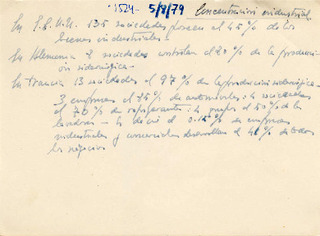 1524- 5/8/79 Concentración industrial
En E.E.U.U. 135 sociedades poseen el 45% de los
bienes industriales.
En Alemania 2 sociedades controlan el 20% de la producción
siderúrgica.
En Francia 13 sociedades el 97% de la producción siderúrgica-
3 empresas el 75% de automóviles: 4 sociedades
el 70% de refrigerantes: 4 grupos el 50% de la
- de empresas
industriales y comerciales el 40% de todos
los negocios